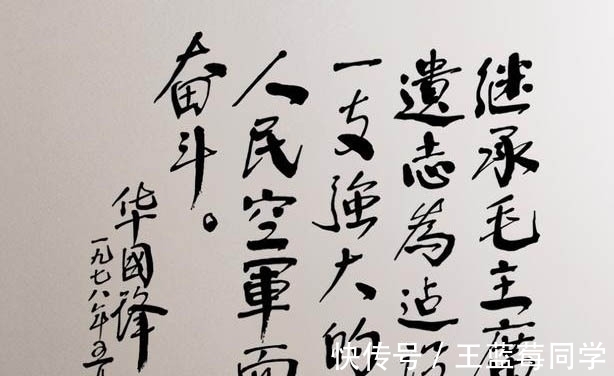 继承毛主席
遺志為迠设
一支強大的
人民空軍而
奋斗。
华國锋
一九七八年五
快传号 / 王蓝莓同学